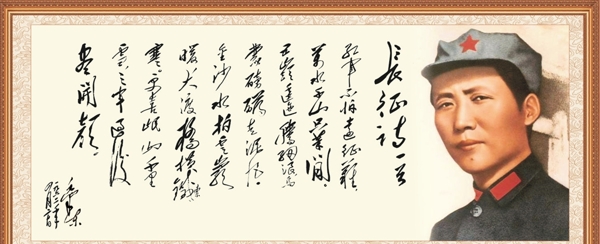 長征詩一首
紅軍不怕遠征難
萬水千山只等閒
五嶺逶迤騰細浪烏
蒙磅礴走泥丸
金沙水拍雲崖
暖大渡橋橫鐵索
寒更喜岷山千里
雪三軍過後
盡開顏
毛澤東